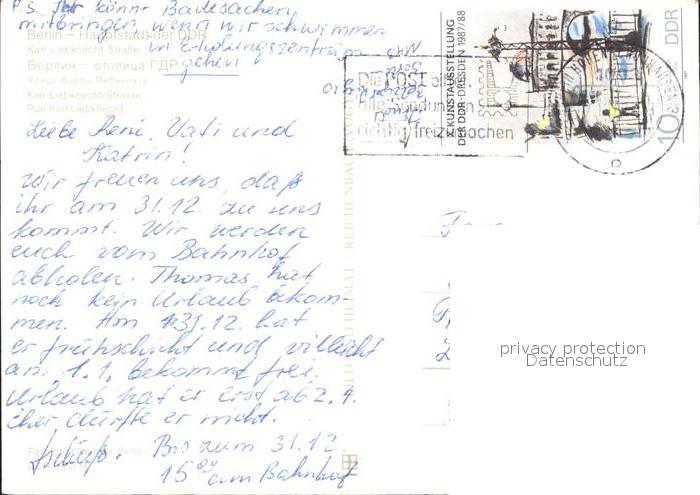 P.S. Ihr könnt Badesachen
mitbringen, wenn wir schwimmen
im Erholungszentrum
gehen!
Berlin — Hauptstadt der DDR
Karl-Liebknecht-Straße
Берлин — столица ГДР
Улица Карла Либкнехта
Karl-Liebknecht-Strasse
Rue Karl Liebknecht
Liebe Reni, Vati und
Katrin!
Wir freuen uns, daß
ihr am 31.12. zu uns
kommt. Wir werden
euch vom Bahnhof
abholen. Thomas hat
noch kein Urlaub bekom-
men. Am 31.12. hat
er frühschicht und villeicht
am 1.1. bekommt frei.
Urlaub hat er erst ab 2.
eher dürfte er nicht.
Tschüß. Bis zum 31.12.
15⁰⁰ am Bahnhof
X. KUNSTAUSSTELLUNG
DER DDR · DRESDEN 1987/88
DDR
10
Die POST
alle Sendungen
richtig freizumachen
privacy protection
Datenschutz